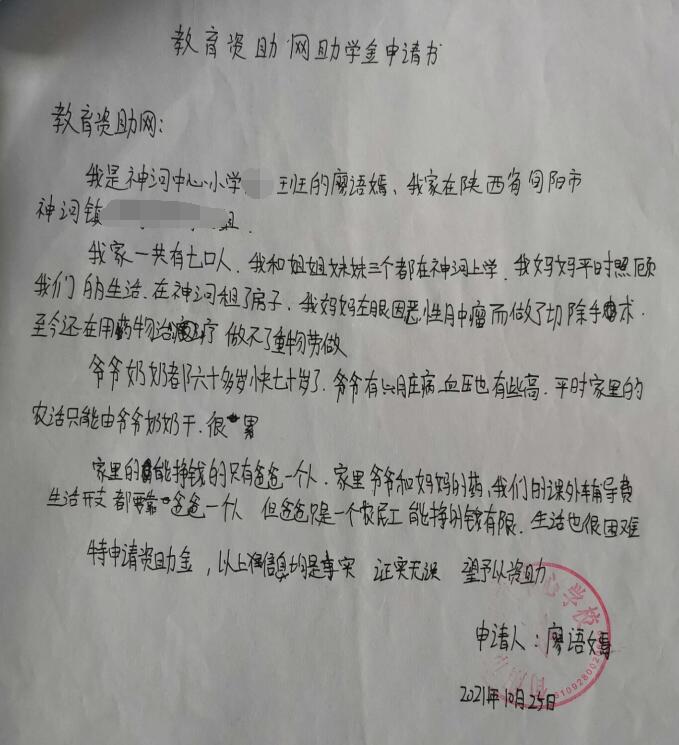 教育资助网助学金申请书
教育资助网：
我是神河中心小学 班的廖语嫣、我家在陕西省旬阳市
神河镇 组.
我家一共有七口人. 我和姐姐妹妹三个都在神河上学. 我妈妈平时照顾
我们的生活. 在神河租了房子. 我妈妈左眼因恶性肿瘤而做了切除手术.
至今还在用药物治疗 做不了重物劳做
爷爷奶奶都六十多岁快七十岁了. 爷爷有心脏病 血压也有些高. 平时家里的
农活只能由爷爷奶奶干. 很累
家里的能挣钱的只有爸爸一个人. 家里爷爷和妈妈的药、我们的课外辅导费
生活开支都要靠爸爸一个人 但爸爸只是一个农民工 能挣的钱有限. 生活也很困难
特申请资助金，以上信息均是事实 证实无误 望予以资助
申请人：廖语嫣
2021年10月25日
心学校
610928002